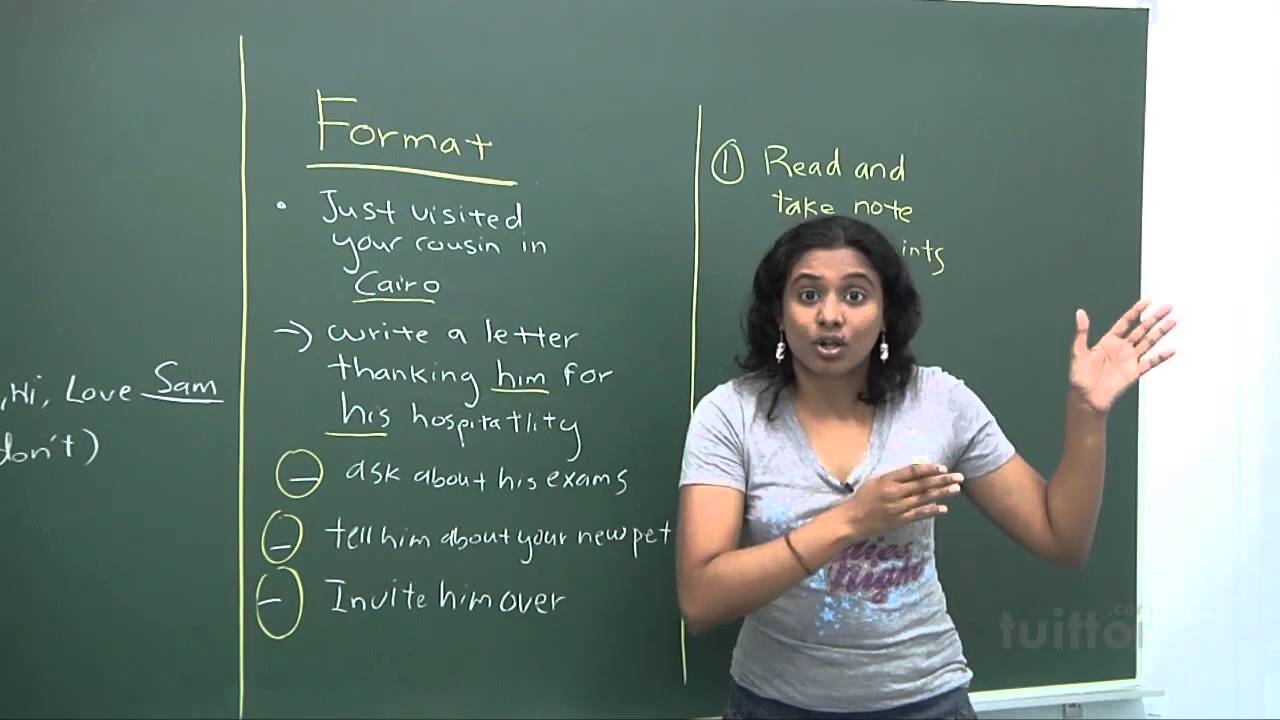 ,Hi, Love Sam
don't)
Format
• Just visited
your cousin in
Cairo
→ write a letter
thanking him for
his hospitatlity
– ask about his exams
– tell him about your new pet
– Invite him over
① Read and
take note
ints
dies
night
tuittor
.com